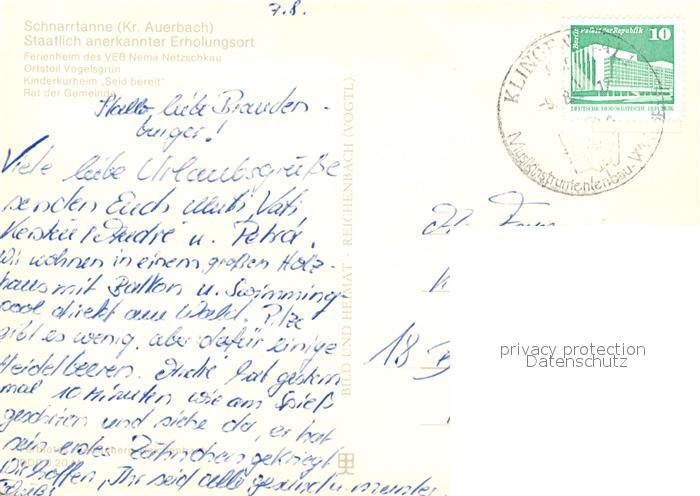 7.8.
Schnarrtanne (Kr. Auerbach)
Staatlich anerkannter Erholungsort
Ferienheim des VEB Nema Netzschkau
Ortsteil Vogelsgrün
Kinderkurheim „Seid bereit"
Rat der Gemeinde
Hallo liebe Branden-
burger!
Viele liebe Urlaubsgrüße
senden Euch Mutti, Vati
Kerstin, André u. Petra.
Wir wohnen in einem großen Holz-
haus mit Balkon u. Swimming-
pool direkt am Wald. Pilze
gibt es wenig, aber dafür einige
Heidelbeeren. André hat gestern
mal 10 Minuten wie am Spieß
geschrien und siehe da, er hat
sein erstes Zähnchen gekriegt
Wir hoffen, Ihr seid alle gesund u. munter
BILD UND HEIMAT · REICHENBACH (VOGTL)
Berlin Palast der Republik
10
DEUTSCHE DEMOKRATISCHE REPUBLIK
KLINGEN
Musikinstrumentenbau-
18
privacy protection
Datenschutz